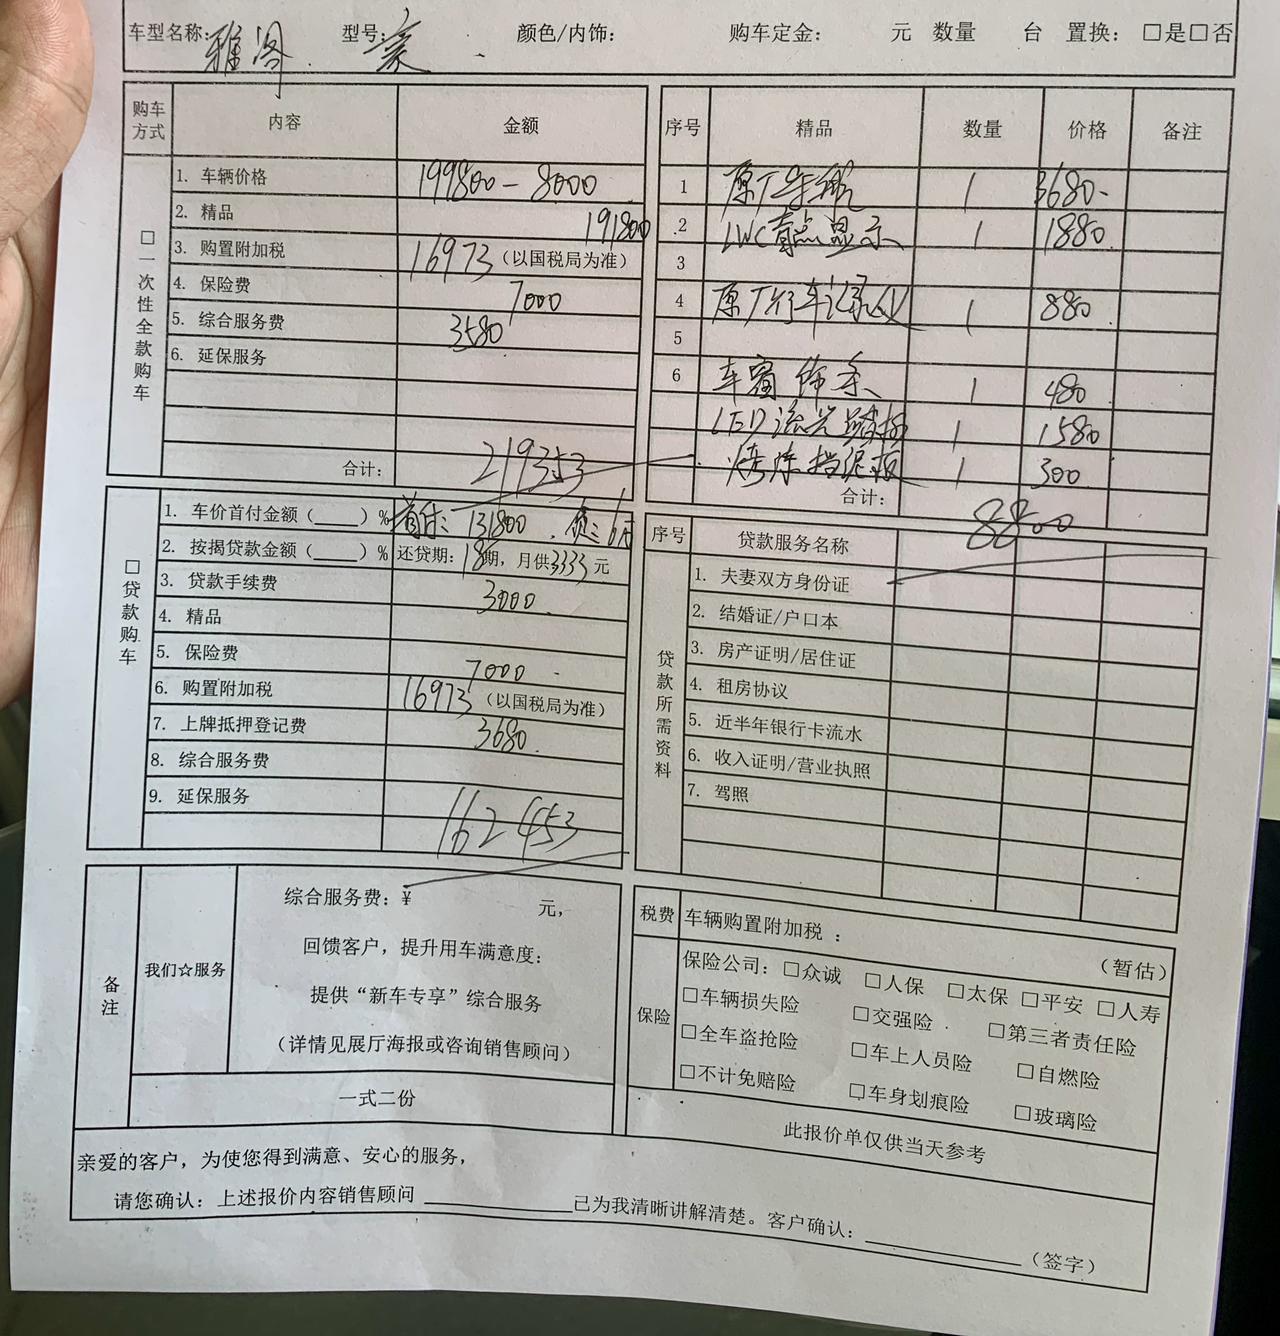 车型名称: 雅阁 型号: 豪 颜色/内饰: 购车定金: 元 数量 台 置换: □是□否
购车方式 内容 金额
□一次性全款购车
1. 车辆价格 199800-8000
2. 精品 191800
3. 购置附加税 16973 (以国税局为准)
4. 保险费 7000
5. 综合服务费 3580
6. 延保服务
合计: 219353
序号 精品 数量 价格 备注
1 原厂导航 1 3680-
2 LWC盲点显示 1 1880
3
4 原厂行车记录仪 1 880
5
6 车窗饰条 1 480
LED流光踏板 1 1580
烤漆挡泥板 1 300
合计: 8800
□贷款购车
1. 车价首付金额(____)% 首付: 131800 . 贷: 6万
2. 按揭贷款金额(____)% 还贷期: 18期, 月供3333元
3. 贷款手续费 3000
4. 精品
5. 保险费 7000
6. 购置附加税 16973 (以国税局为准)
7. 上牌抵押登记费 3680
8. 综合服务费
9. 延保服务
162453
序号 贷款服务名称
贷款所需资料
1. 夫妻双方身份证
2. 结婚证/户口本
3. 房产证明/居住证
4. 租房协议
5. 近半年银行卡流水
6. 收入证明/营业执照
7. 驾照
备注 我们☆服务
综合服务费: ¥ 元,
回馈客户, 提升用车满意度:
提供“新车专享”综合服务
(详情见展厅海报或咨询销售顾问)
一式二份
税费 车辆购置附加税 : (暂估)
保险 保险公司: □众诚 □人保 □太保 □平安 □人寿
□车辆损失险 □交强险 □第三者责任险
□全车盗抢险 □车上人员险 □自燃险
□不计免赔险 □车身划痕险 □玻璃险
此报价单仅供当天参考
亲爱的客户, 为使您得到满意、安心的服务,
请您确认: 上述报价内容销售顾问 ____________己为我清晰讲解清楚。客户确认: ____________ (签字)